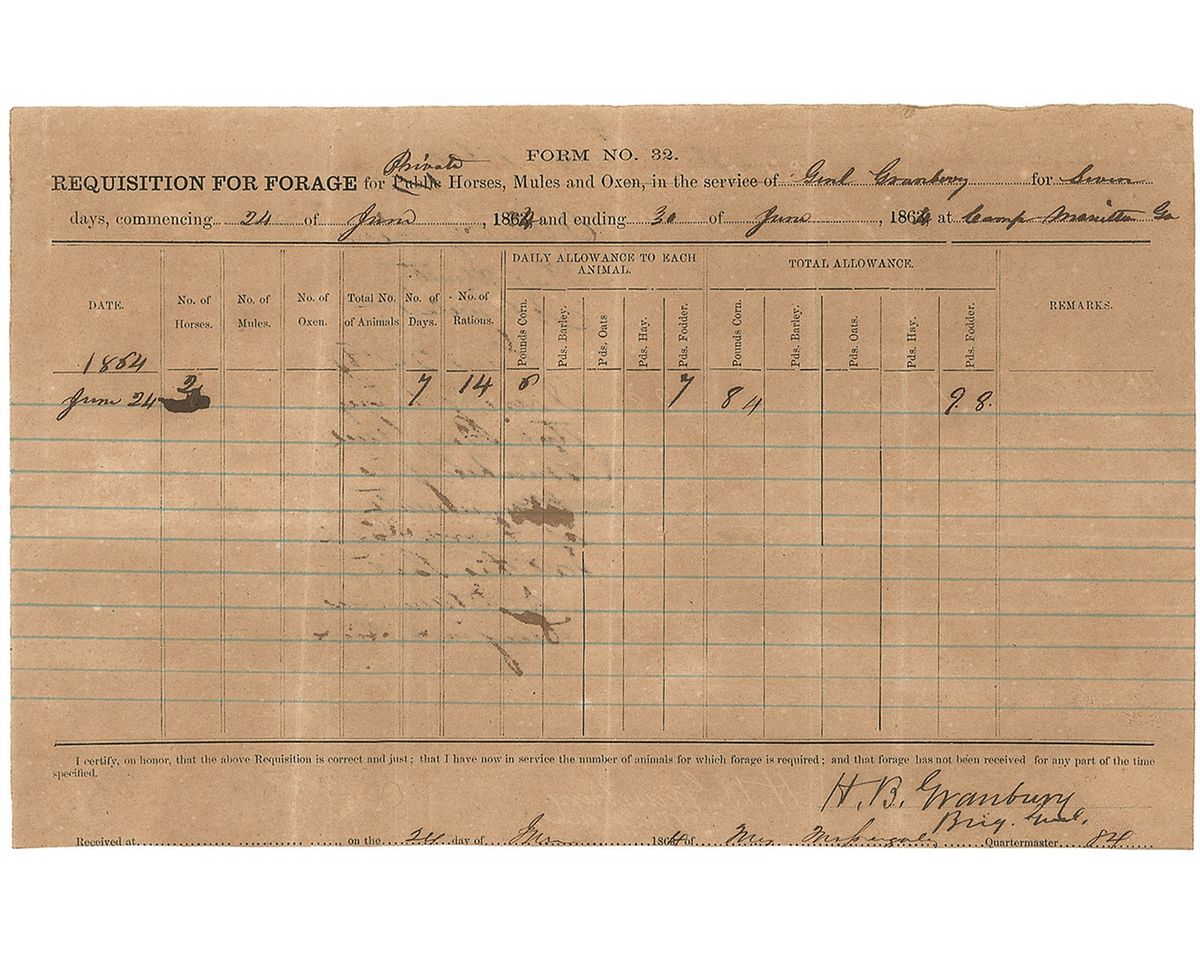 FORM NO. 32.
Private
REQUISITION FOR FORAGE for Public Horses, Mules and Oxen, in the service of Genl Granbury for Seven
days, commencing 24 of June, 1864 and ending 30 of June, 1864, at Camp Marietta Ga
DAILY ALLOWANCE TO EACH ANIMAL. TOTAL ALLOWANCE.
DATE. No. of Horses. No. of Mules. No. of Oxen. Total No. of Animals No. of Days. No. of Rations. Pounds Corn. Pds. Barley. Pds. Oats Pds. Hay. Pds. Fodder. Pounds Corn. Pds. Barley. Pds. Oats. Pds. Hay. Pds. Fodder. REMARKS.
1864
June 24 2 7 14 6 7 84 98.
I certify, on honor, that the above Requisition is correct and just; that I have now in service the number of animals for which forage is required; and that forage has not been received for any part of the time
specified.
H. B. Granbury
Brig. Genl.
Received at on the 24 day of June 1864 of Quartermaster 84